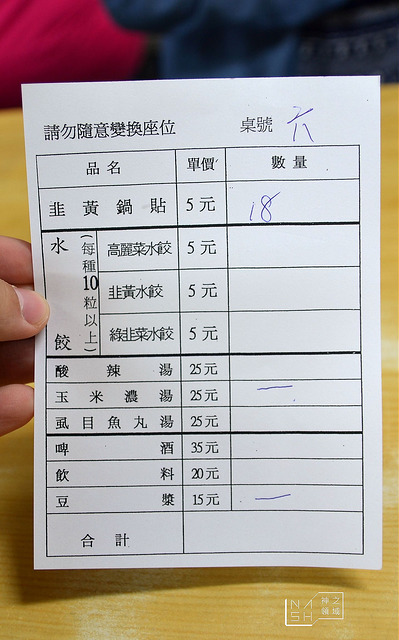 請勿隨意變換座位 桌號 六
品名 單價 數量
韭黃鍋貼 5元 18
水餃（每種10粒以上）
高麗菜水餃 5元
韭黃水餃 5元
綠韭菜水餃 5元
酸辣湯 25元
玉米濃湯 25元 一
虱目魚丸湯 25元
啤酒 35元
飲料 20元
豆漿 15元 一
合計
神之領域